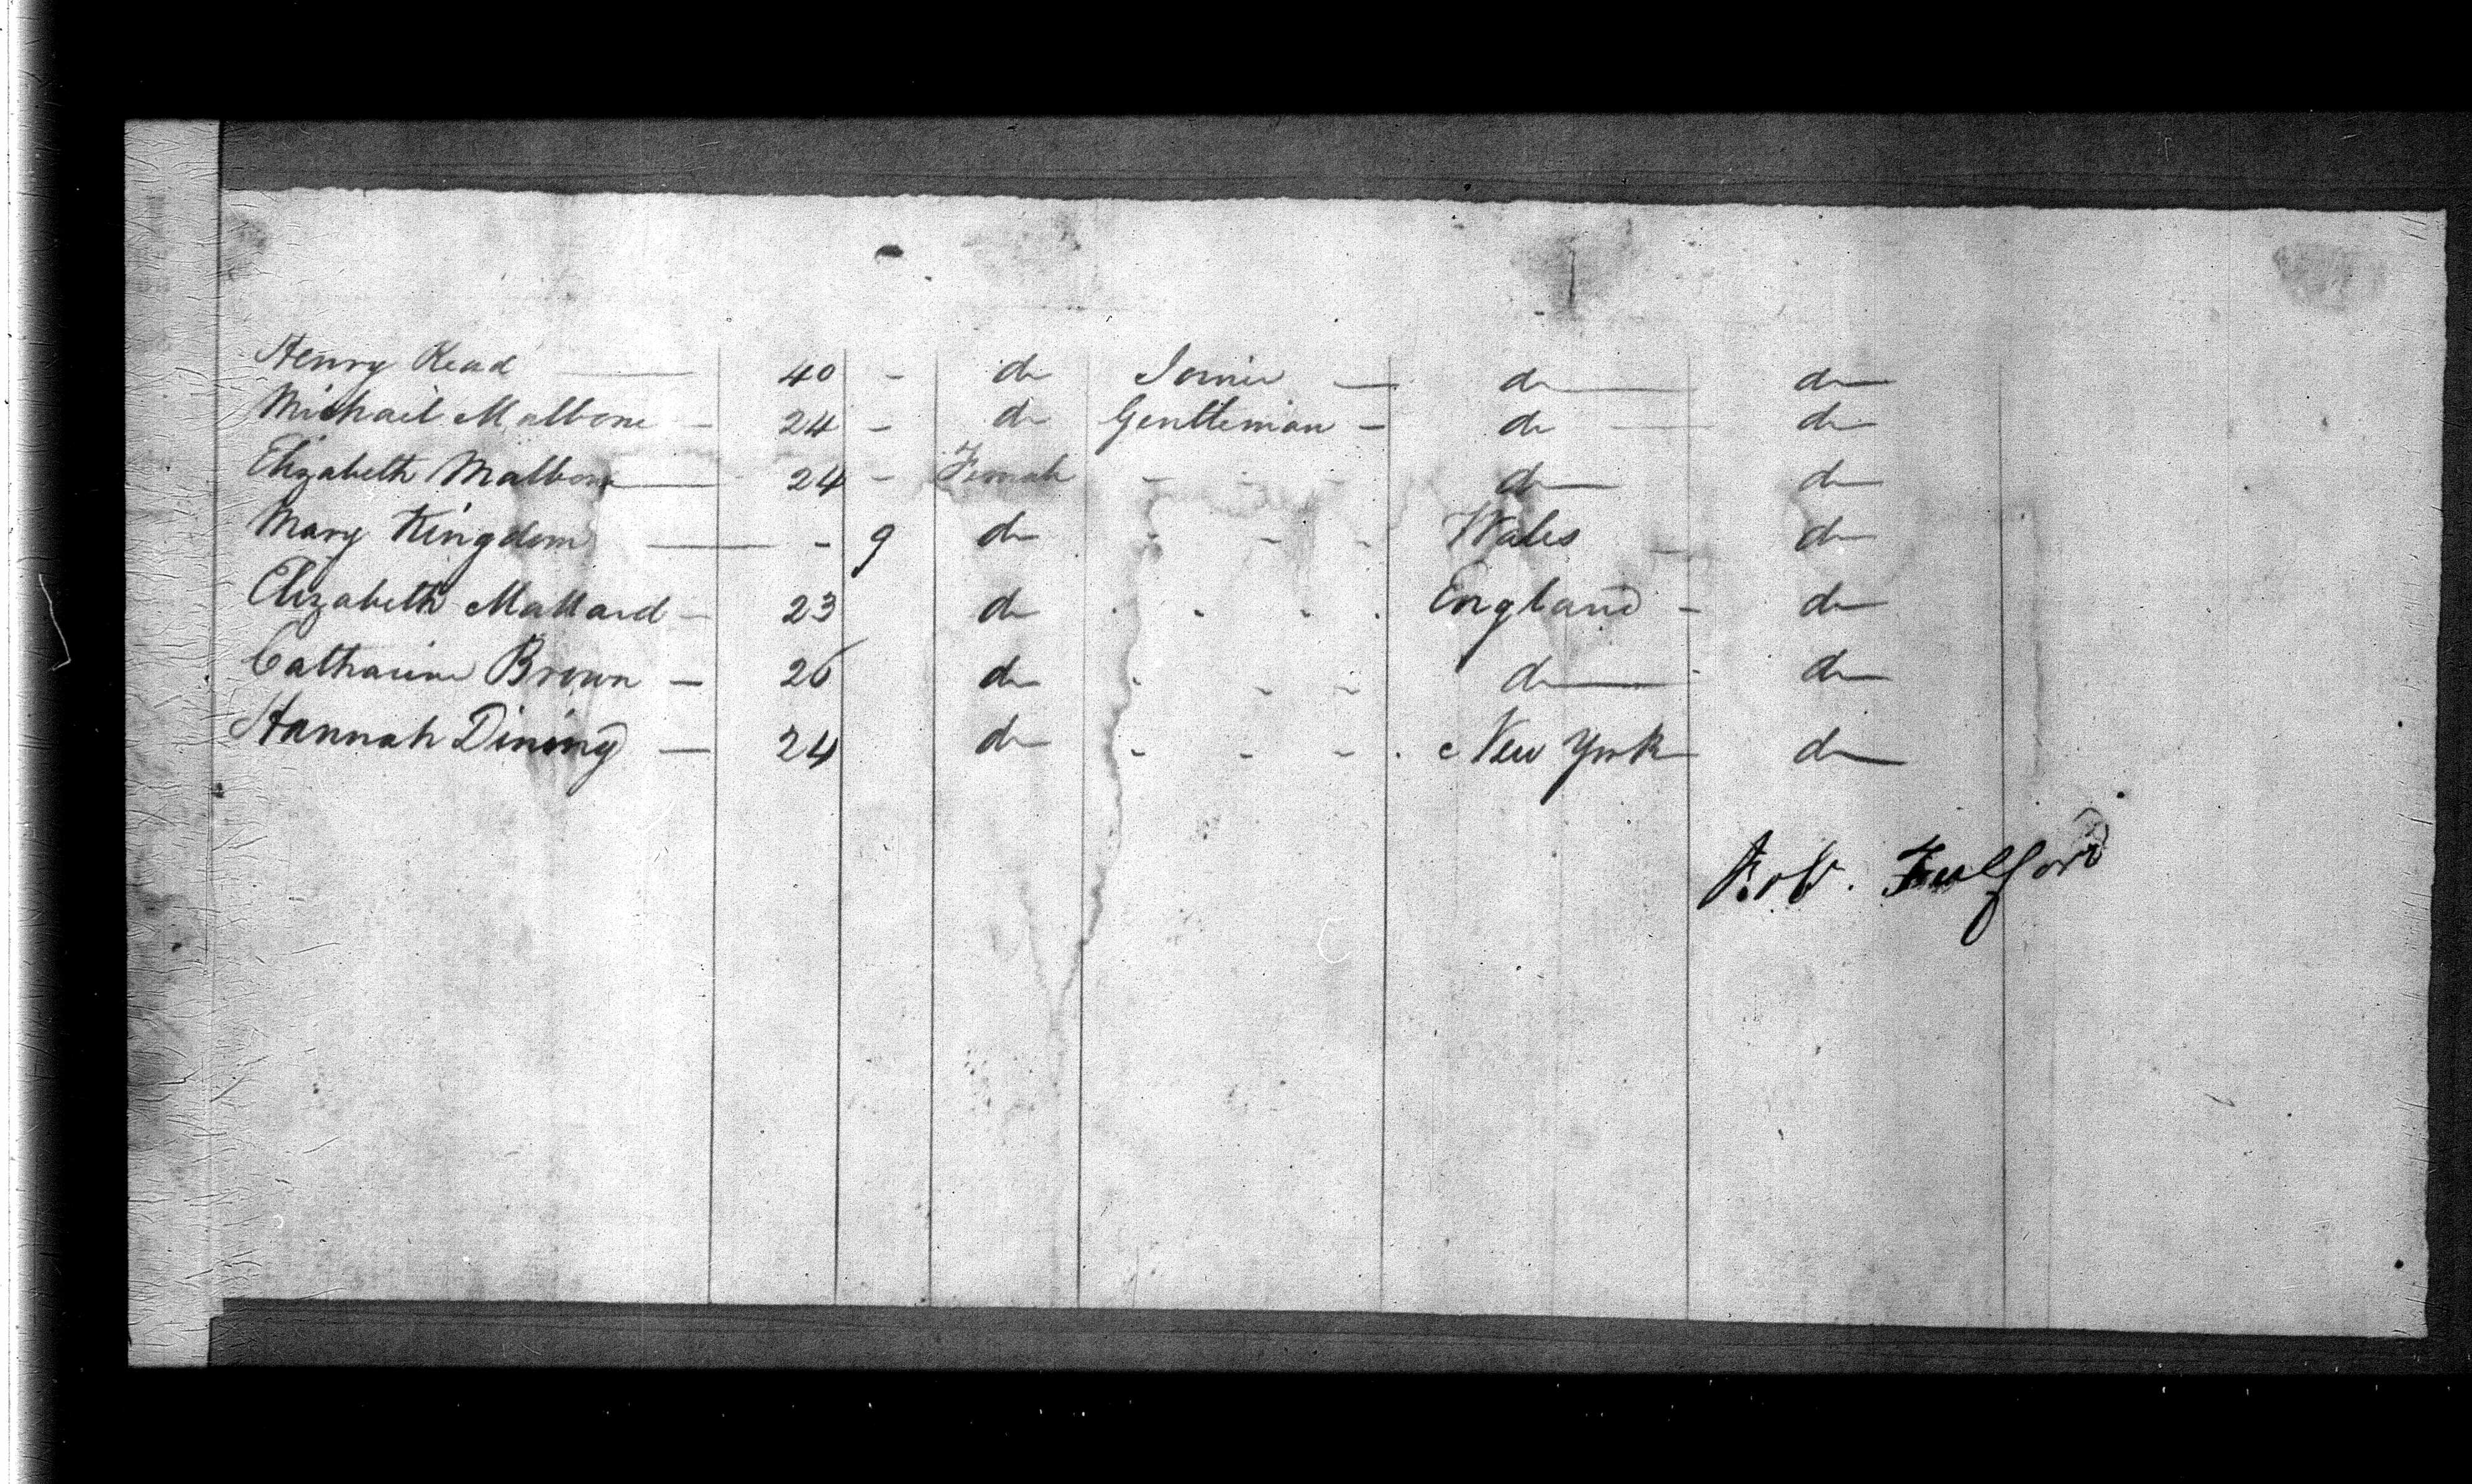 Henry Read — 40 - do Joiner — do — do
Michael Malbone - 24 - do Gentleman - do — do
Elizabeth Malbone — 24 - Female - - - do — do
Mary Kingdom — - 9 do - - - Wales - do
Elizabeth Mallard - 23 do - - - England - do
Catharine Brown - 26 do - - - do — do
Hannah Dining — 24 do - - - New York do
Rob. Fulford